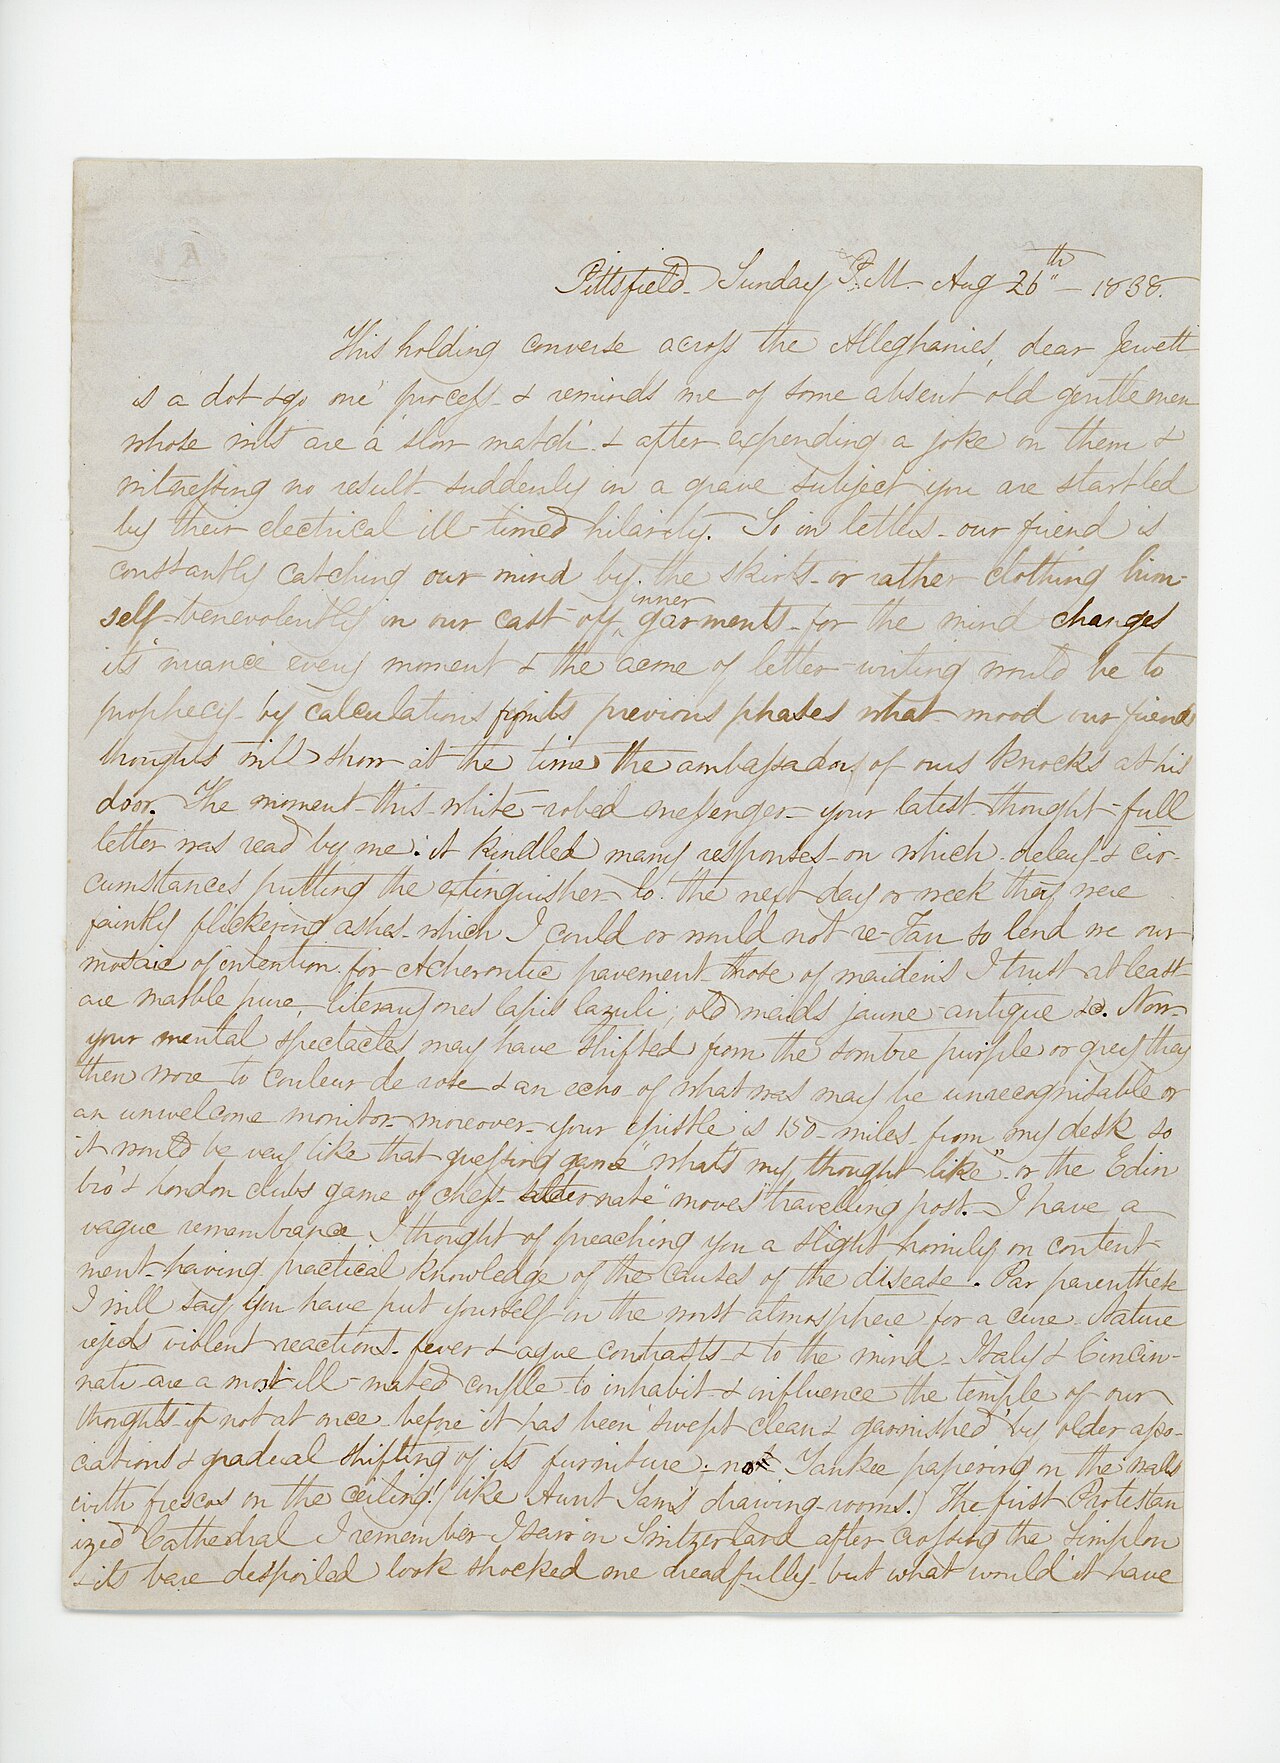 Pittsfield. Sunday P.M. Aug 26th 1838.
This holding converse across the Alleghanies, dear Jewett
is a 'dot & go one' process & reminds me of some absent old gentlemen
whose wits are a 'slow match' & after expending a joke on them &
witnessing no result suddenly in a grave subject you are startled
by their electrical ill-timed hilarity. So in letters - our friend is
constantly catching our mind by the skirts - or rather clothing him-
self benevolently in our cast-off inner garments - for the mind changes
its nuance every moment & the acme of letter-writing would be to
prophecy by calculations from its previous phases what mood our friend
thoughts will show at the time the ambassadors of ours knocks at his
door. The moment this white-robed messenger - your latest thought-full
letter was read by me: it kindled many responses - on which delay & cir-
cumstances putting the extinguisher - lo! the next day or week they were
faintly flickering ashes which I could or would not re-fan so lend we our
mosaic of intention for Acherontic pavement - those of maidens I trust at least
are marble pure, literary ones lapis lazuli; old maids jaune-antique &c. Now-
your mental spectacles may have shifted from the sombre purple or grey they
then wore to couleur de rose & an echo of what was may be unrecognizable or
an unwelcome monitor - moreover - your epistle is 150 miles from my desk so
it would be very like that guessing game "what's my thought like" or the Edin
bro' & London clubs game of chess alternate "moves" travelling post. I have a
vague remembrance I thought of preaching you a slight homily on content-
ment - having practical knowledge of the causes of the disease. Par parenthese
I will say you have put yourself in the worst atmosphere for a cure. Nature
rejects violent reactions - fever & ague contrasts & to the mind - Italy & Cincin-
nati are a most ill-mated couple to inhabit & influence the temple of our
thoughts if not at once before it has been 'swept clean & garnished' by older asso-
ciations & gradual shifting of its furniture; not Yankee papering on the walls
with frescos on the ceiling! (like Aunt Sam's drawing-rooms.) The first Protestan
ized Cathedral I remember I saw in Switzerland after crossing the Simplon
& its bare despoiled look shocked me dreadfully - but what would it have